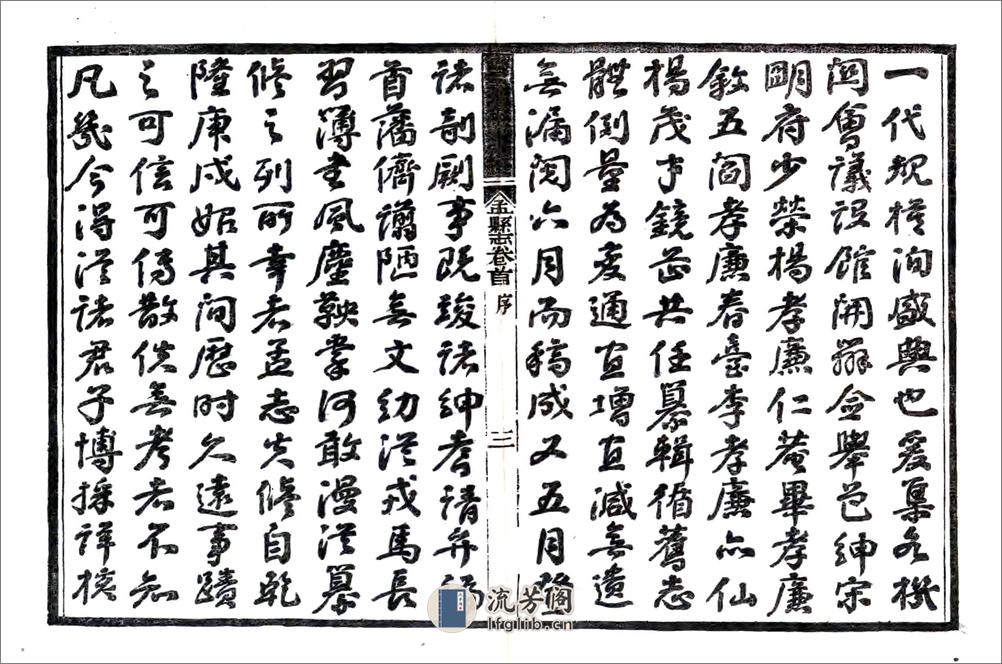 一代規模洵盛典也爰集各機
關會議設館開辦僉舉邑紳宋
明府少榮楊孝廉仁菴畢孝廉
敘五閻孝廉春臺李孝廉亦仙
楊茂才鏡芷共任纂輯循舊志
體例量為變通宜增宜減無遺
無漏閱六月而稿成又五月登
孟縣志卷首 序 三
諸剞劂事既竣諸紳耆請弁
首藩儕譾陋無文幼從戎馬長
習簿書風塵鞅掌何敢漫從纂
修之列所幸者孟志失修自乾
隆庚戌始其間歷時久遠事蹟
之可信可傳散佚無考者不知
凡幾今得從諸君子博採詳核
流芳阁
lfglib.cn